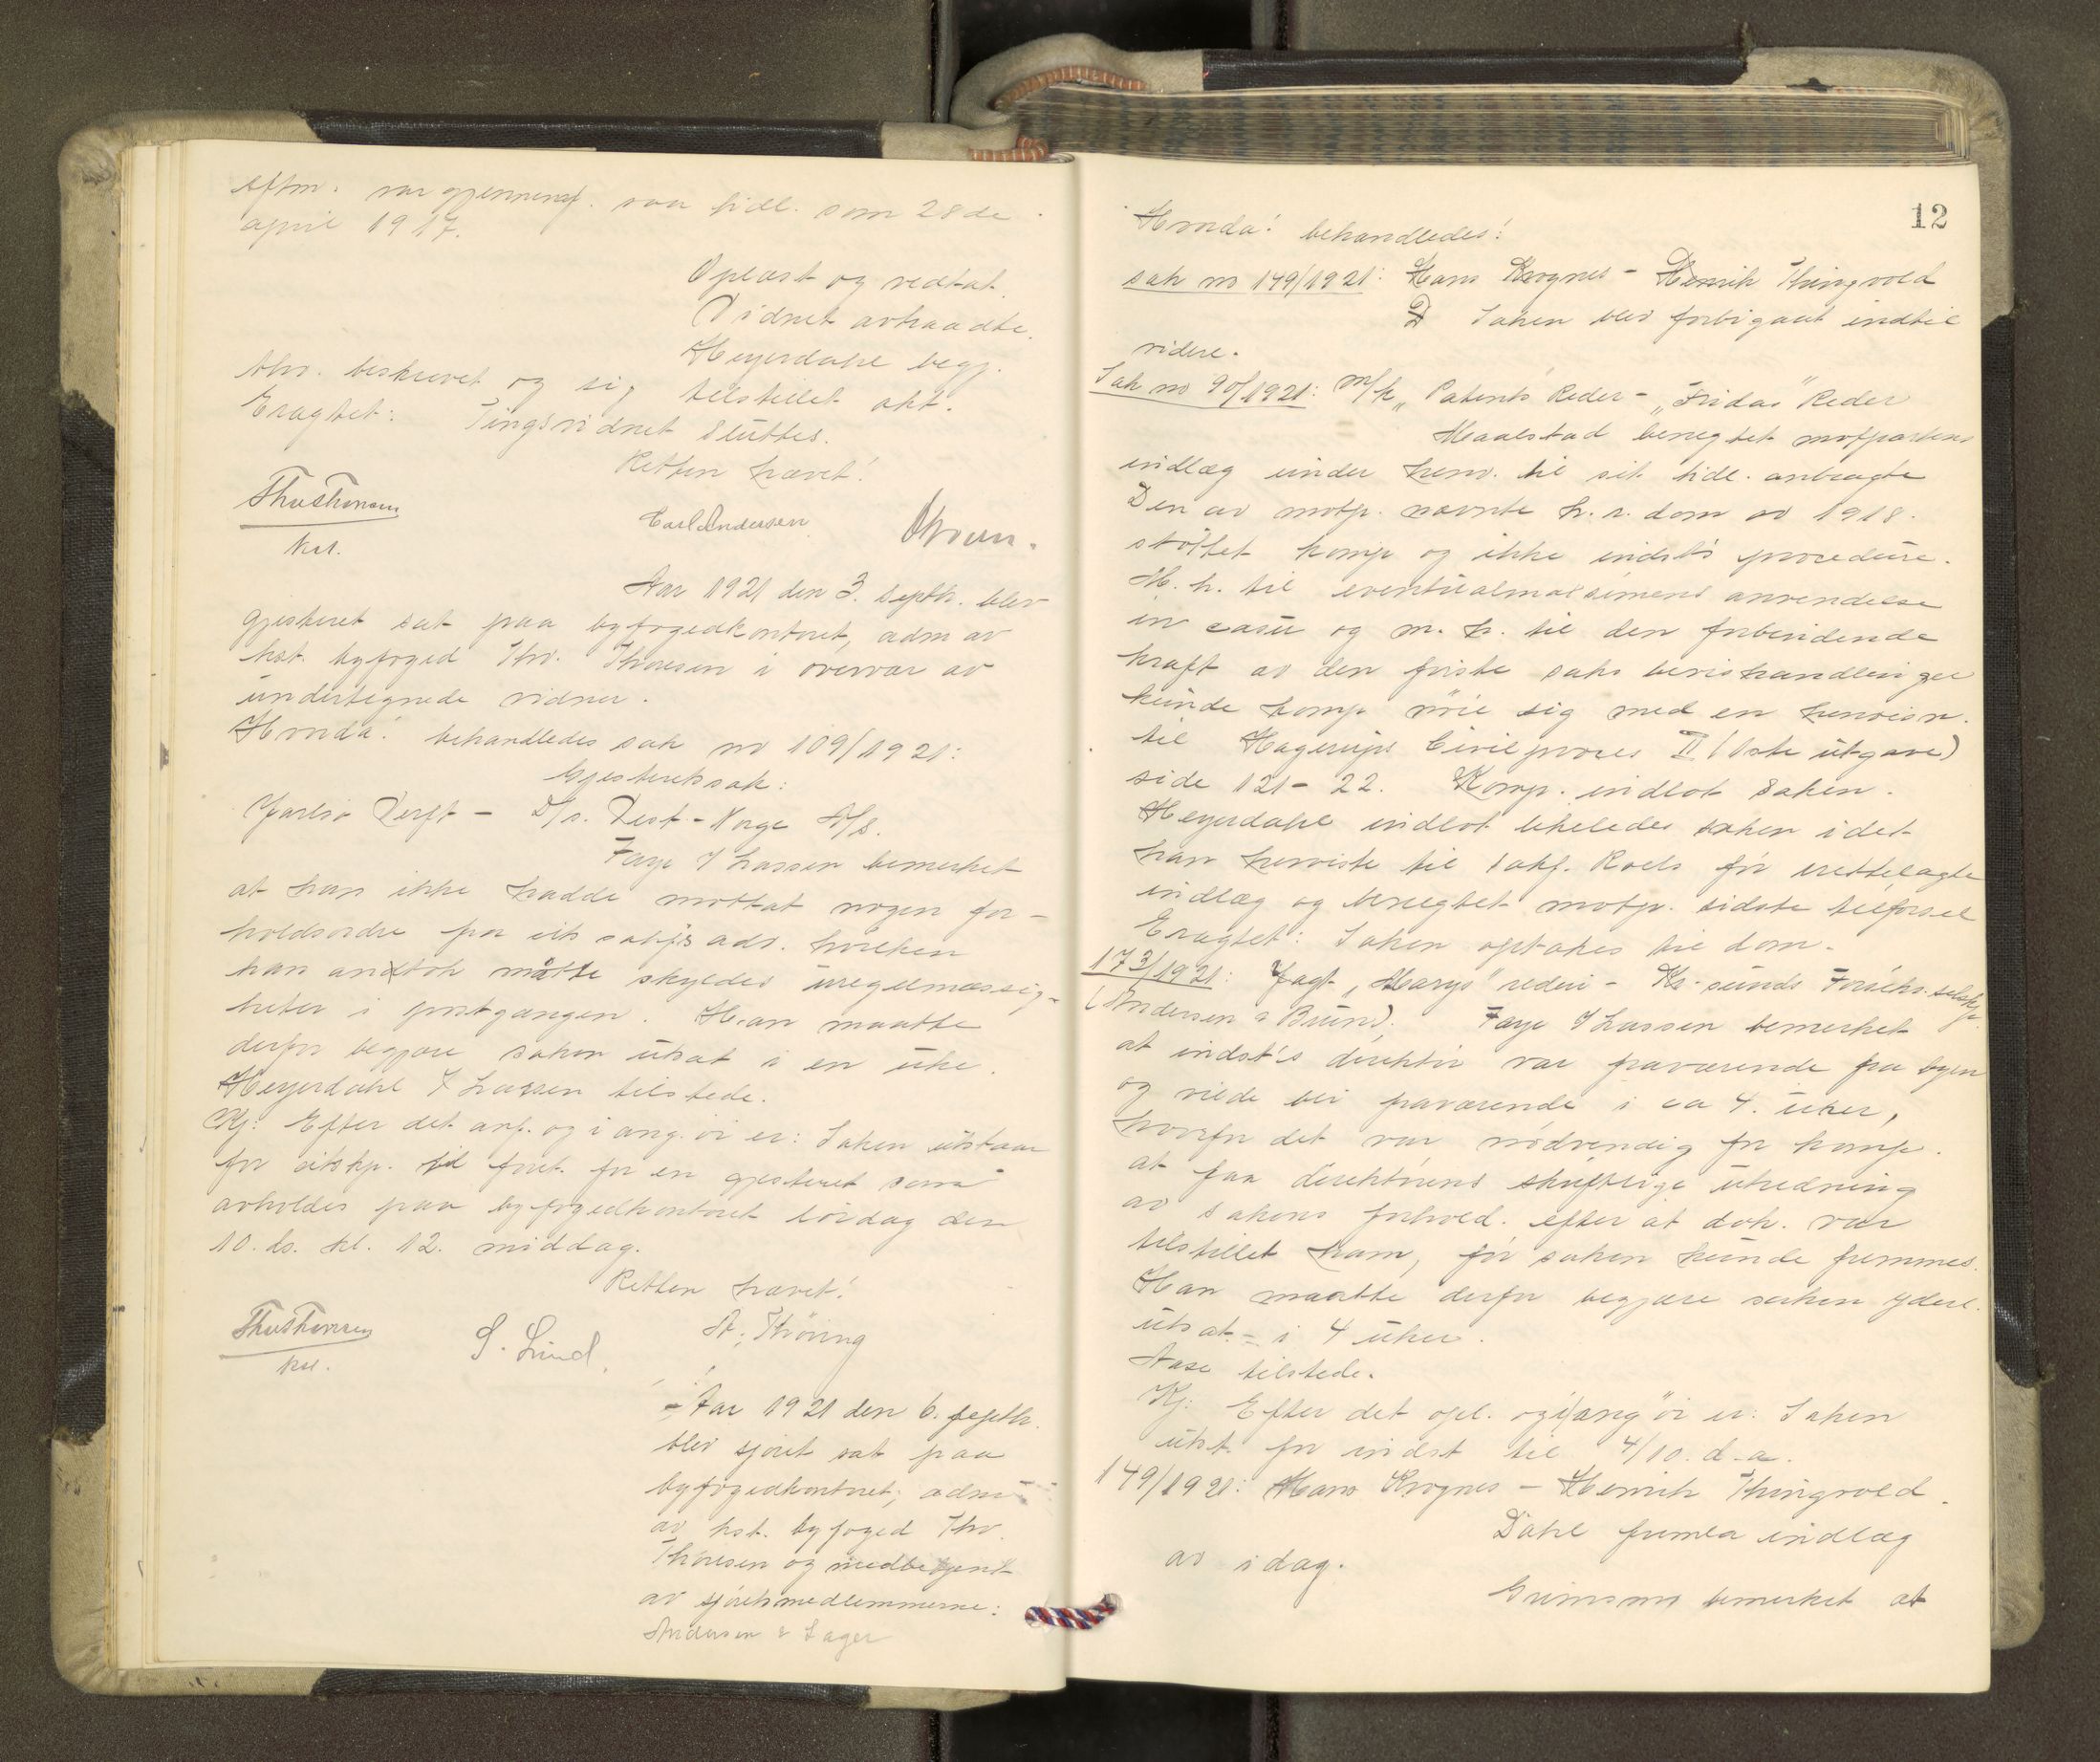 eftm. var gjennemg. saa tidl. som 28de
april 1917.
Oplæst og vedtat.
Vidnet avtraadte.
Heyerdahl begj.
Thv. beskrevet og sig tilstillet akt.
Eragtet: Tingsvidnet sluttes.
Retten hævet!
Thv Thoresen
kst.
Carl Andersen
Aar 1921 den 3. septbr. blev
gjesteret sat paa byfogedkontoret, adm av
kst. byfoged Thv. Thoresen i overvær av
undertegnede vidner.
Hvorda! behandledes sak no 109/1921:
Gjesteretssak:
Jarlsø Verft - D/s. Vest-Norge A/S.
Faye f Lassen bemerket
at han ikke hadde mottat nogen for-
holdsordre fra sit adv. hvilken
han antok måtte skyldes uregelmæssig-
heter i postgangen. Han maatte
derfor begjære saken utsat i en uke.
Heyerdahl f Lassen tilstede.
Kj: Efter det anf. og i ang. øi er: Saken utstaar
for citskp. til foret. for en gjesteret som
avholdes paa byfogedkontoret lördag den
10. ds. kl. 12. middag.
Retten hævet!
Thv Thoresen
kst.
S. Lund.
A. Thöring
Aar 1921 den 6. septbr.
blev sjøret sat paa
byfogedkontoret, adm
av kst. byfoged Thv.
Thoresen og medbetjent
av sjøretsmedlemmerne:
Andersen & Lager
12
Hvorda! behandledes!
sak no 149/1921: Hans Krognes - Henrik Thingvold
Saken blev forbigaat indtil
videre.
Sak no 90/1921: m/k "Patents" Reder - "Fridas" Reder
Maalstad benegtet motpartens
indlæg under henv. til sit tidl. anbragte
Den av motp. nævnte h.r. dom av 1918.
støttet komp og ikke indst's procedure.
M. h. til eventualmaksimens anvendelse
in casu og m. h. til den forbindende
kraft av den første saks bevishandlinger
kunde komp nöie sig med en henvisn.
til Hagerups Civilproces II (1ste utgave)
side 121-22. Komp. indlot saken.
Heyerdahl indlot likeledes saken idet
han henviste til sakf. Roels før irettelagte
indlæg og benegtet motp. sidste tilførsel
Eragtet: Saken optakes til dom.
173/1921: Jagt "Marys" rederi - Kr.sunds Forsikr.selskp.
(Andersen & Bruun). Faye f Lassen bemerket
at indst's direktör var fraværende fra byen
og vilde bli fraværende i ca 4. uker,
hvorfor det var nödvendig for komp.
at faa direktörens skriftlige utredning
av sakens forhold. efter at dok. var
tilstillet ham, før saken kunde fremmes.
Han maatte derfor begjære saken yderl.
utsat - i 4 uker.
Aase tilstede.
Kj: Efter det opl. og i ang øi er: Saken
utst. for indst til 4/10. d.a.
149/1921: Hans Krognes - Henrik Thingvold.
Dahl fremla indlæg
av idag.
Grimsmo bemerket at